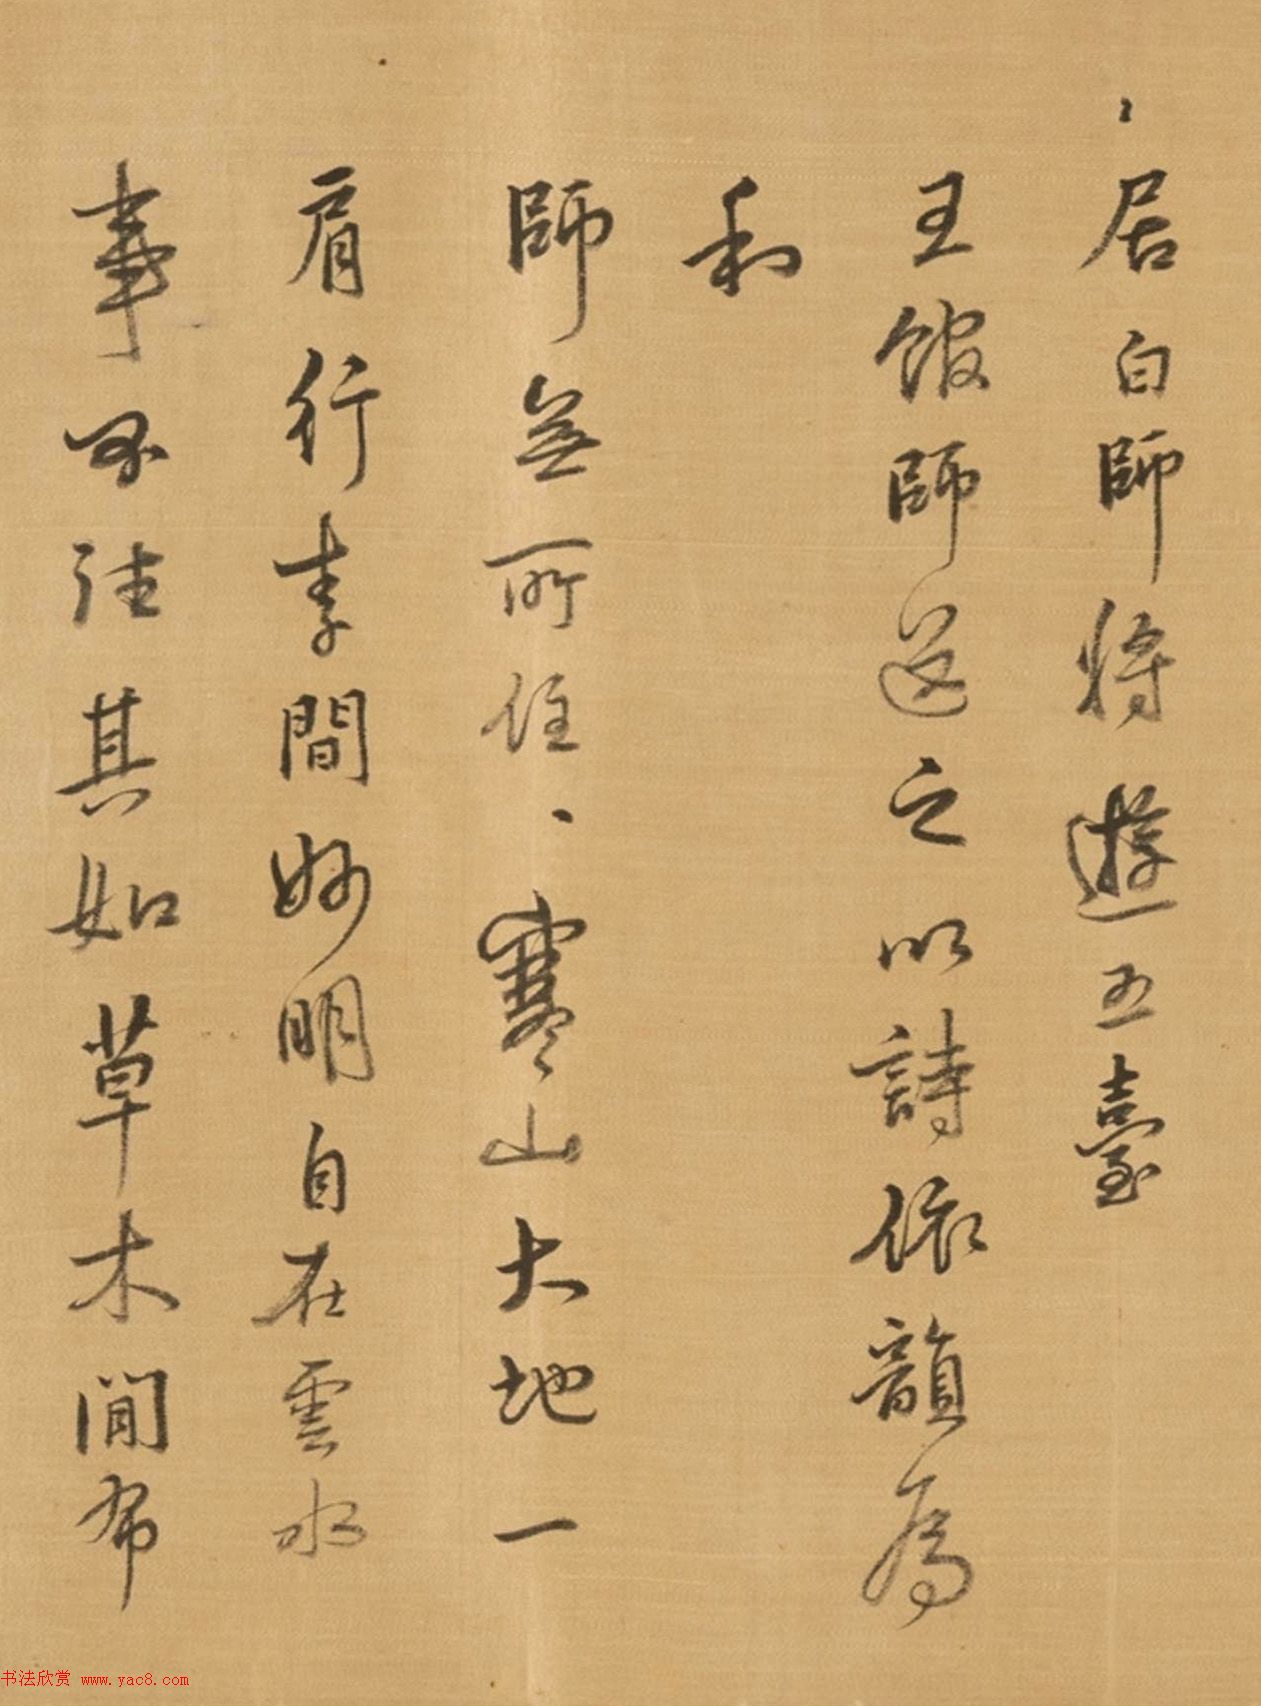 居白師將遊五臺
王館師送之以詩依韻為
和
師無所住、寒山大地一
肩行李間妙明自在雲水
事其如草木閒布
书法欣赏 www.yac8.com